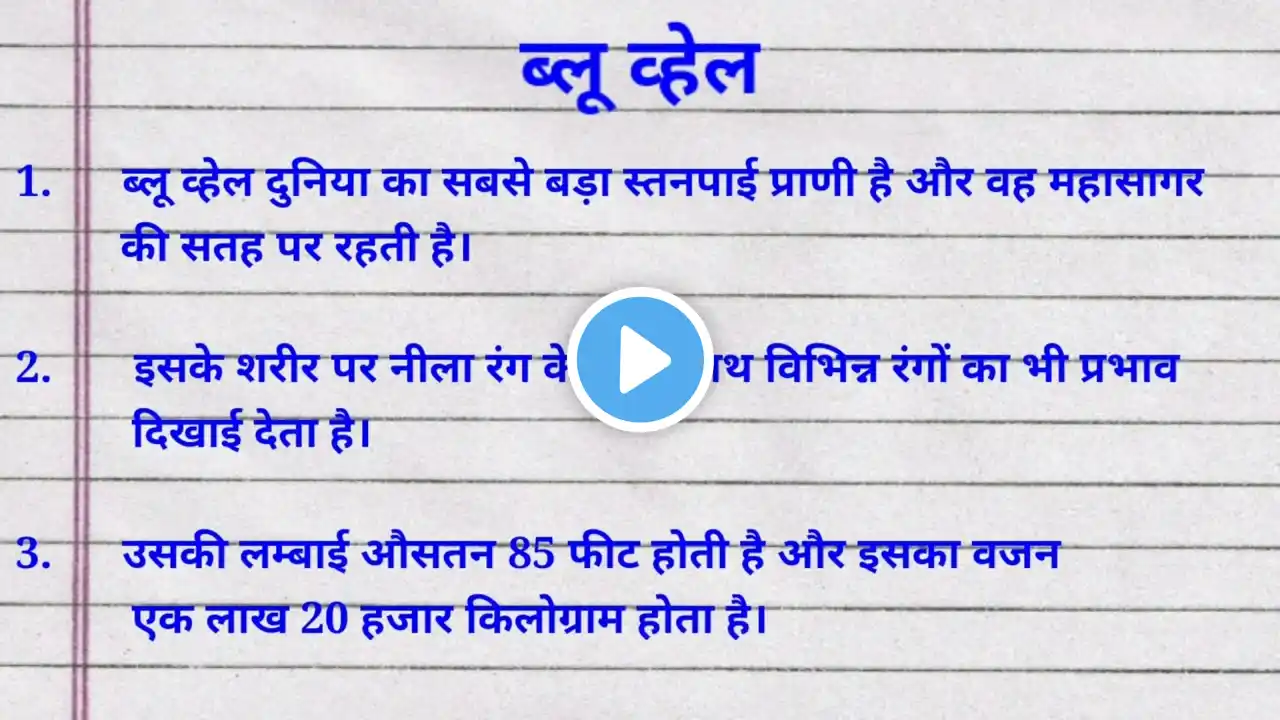 ब्लू व्हेल
1. ब्लू व्हेल दुनिया का सबसे बड़ा स्तनपाई प्राणी है और वह महासागर
की सतह पर रहती है।
2. इसके शरीर पर नीला रंग विभिन्न रंगों का भी प्रभाव
दिखाई देता है।
3. उसकी लम्बाई औसतन 85 फीट होती है और इसका वजन
एक लाख 20 हजार किलोग्राम होता है।